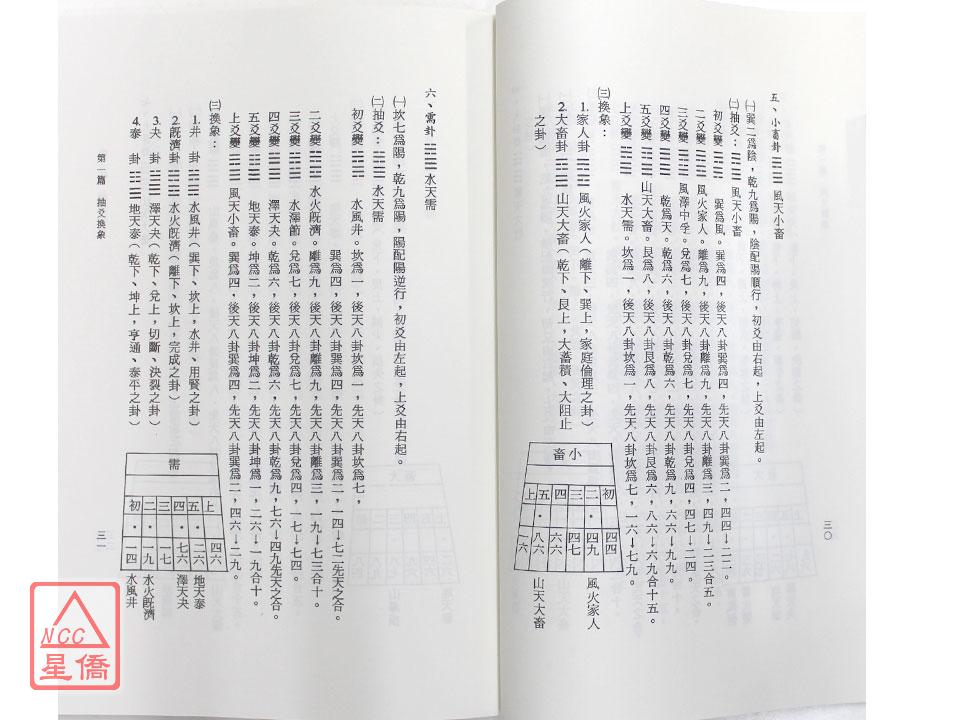 五、小畜卦 ䷈ 風天小畜
㈠巽二爲陰，乾九爲陽，陰配陽順行，初爻由右起，上爻由左起。
㈡抽爻：䷈ 風天小畜
初爻變 巽爲風。巽爲四，後天八卦巽爲四，先天八卦巽爲二，四四→二二。
二爻變 風火家人。離爲九，後天八卦離爲九，先天八卦離爲三，四九→二三合五。
三爻變 風澤中孚。兌爲七，後天八卦兌爲七，先天八卦兌爲四，四七→二四。
四爻變 乾爲天。乾爲六，後天八卦乾爲六，先天八卦乾爲九，六六→九九。
五爻變 山天大畜。艮爲八，後天八卦艮爲八，先天八卦艮爲六，八六→六九合十五。
上爻變 水天需。坎爲一，後天八卦坎爲一，先天八卦坎爲七，一六→七九。
㈢換象：
1.家人卦 風火家人（離下、巽上，家庭倫理之卦）
2.大畜卦 山天大畜（乾下、艮上，大蓄積、大阻止
之卦）
小畜
初 二 三 四 五 上
四四 四九 四七 六六 八六 一六
風火家人
山天大畜
三〇
六、需卦 ䷄ 水天需
㈠坎七爲陽，乾九爲陽，陽配陽逆行，初爻由左起，上爻由右起。
㈡抽爻：䷄ 水天需
初爻變 水風井。坎爲一，後天八卦坎爲一，先天八卦坎爲七，
巽爲四，後天八卦巽爲四，先天八卦巽爲二，一四→七二先天之合。
二爻變 水火旣濟。離爲九，後天八卦離爲九，先天八卦離爲三，一九→七三合十。
三爻變 水澤節。兌爲七，後天八卦兌爲七，先天八卦兌爲四，一七→七四。
四爻變 澤天夬。乾爲六，後天八卦乾爲六，先天八卦乾爲九，七六→四九先天之合。
五爻變 地天泰。坤爲二，後天八卦坤爲二，先天八卦坤爲一，二六→一九合十。
上爻變 風天小畜。巽爲四，後天八卦巽爲四，先天八卦巽爲二，四六→二九。
㈢換象：
1.井　卦 水風井（巽下、坎上，水井、用賢之卦）
2.旣濟卦 水火旣濟（離下、坎上，完成之卦）
3.夬　卦 澤天夬（乾下、兌上，切斷、決裂之卦）
4.泰　卦 地天泰（乾下、坤上，亨通、泰平之卦）
需
上 五 四 三 二 初
四六 二六 七六 一七 一九 一四
地天泰
澤天夬
水火旣濟
水風井
第一篇　抽爻換象
三一
NCC
星僑